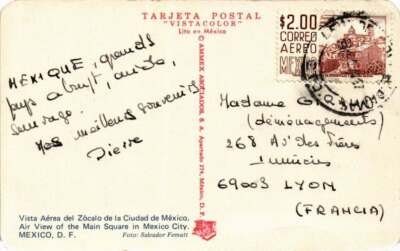 TARJETA POSTAL
"VISTACOLOR"
Lito en México
$2.00
CORREO
AEREO
MEXICO
MEXIQUE, grands
pays abrupt, aride,
sauvage.
Mes meilleurs souvenirs
Pierre
Madame
(déménagements)
268 Av des Frères
Lumières
69003 LYON
(FRANCIA)
© AMMEX ASOCIADOS, S. A. Apartado 274, México, D. F.
Vista Aérea del Zócalo de la Ciudad de México.
Air View of the Main Square in Mexico City.
MEXICO, D. F.
Foto: Salvador Fematt